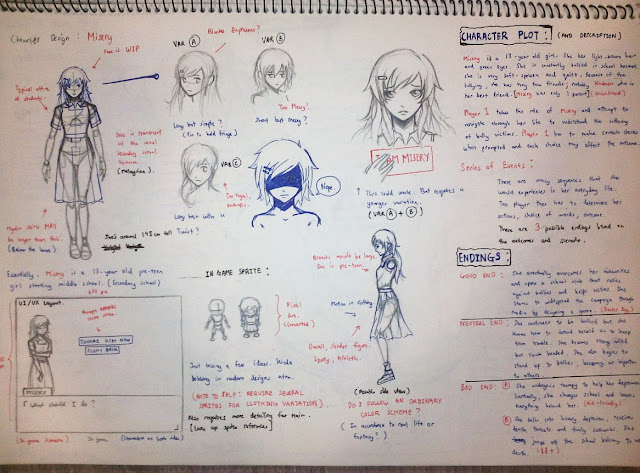 Character Design : Misery
Name is WIP
Typical attire of students.
Dress is reminiscent of the usual secondary school uniform
(Malaysian).
Pigskin skirts MAY be longer than this.
(Below the knees)
She's around 148cm tall
VAR A
Blunter Expression?
VAR B
Long but simple?
(Fix to add fringe)
Too Messy!
Short but messy?
VAR C
Long hair with a Twist?
Nope
I'M MISERY
This could work. But requires a younger variation.
(VAR A + B)
Essentially, Misery is a 13-year-old pre-teen
girl starting middle school. (Secondary school)
UI/UX Layout.
SOMEONE HELP NOW
FIGHT BACK
MISERY
What should I do?
In game
IN GAME SPRITE:
Pixel Art.
(Converted)
Just testing a few ideas. Kinda
lacking in modern designs atm.
(NOTE TO SELF: REQUIRE SEVERAL
SPRITES FOR CLOTHING VARIATION)
Also requires more detailing for main.
[Look up sprite references]
Breasts mustn't be large.
She is pre-teen.
Motion in clothing.
Overall, slender figure
Sporty, Athletic.
(Possible side view)
DO I FOLLOW AN ORDINARY
COLOR SCHEME?
(In accordance to real life or
fantasy?)
CHARACTER PLOT: (AND DESCRIPTION)
Misery is a 13-year old girl. She has light-brown hair
and green eyes. She is constantly bullied in school because
she is very soft-spoken and quiet. Because of the
bullying, she has very few friends; notably, Kindness who is
her best friend. [Misery has only 1 parent]
Player 1 takes the role of Misery and attempt to
navigate through her life to understand the suffering
of bully victims. Player 1 has to make certain choices
when prompted and each choice may affect the outcome.
Series of Events :
There are many sequences that she
would experience in her everyday life.
The player then has to determine her
actions, choice of words, outcome.
There are 3 possible endings based on
the outcomes and scenario.
ENDINGS:
GOOD END :
She eventually overcomes her insecurities
and opens a school club that rallies
against bullies and helps victims. She
learns to widespread the campaign through
media by designing a game.
NEUTRAL END :
She continues to be bullied but she
knows how to defend herself and to keep
from trouble. She becomes strong willed
but varies headed. She also begins to
stand up to bullies, becoming an inspiration
to others.
BAD END :
A She undergoes therapy to help her depression.
Eventually, she changes school and leaves
everything behind her.
B She falls into heavy depression, receives
death threats and finally suicides. She
jumps off the school balcony to her
death. (18+)